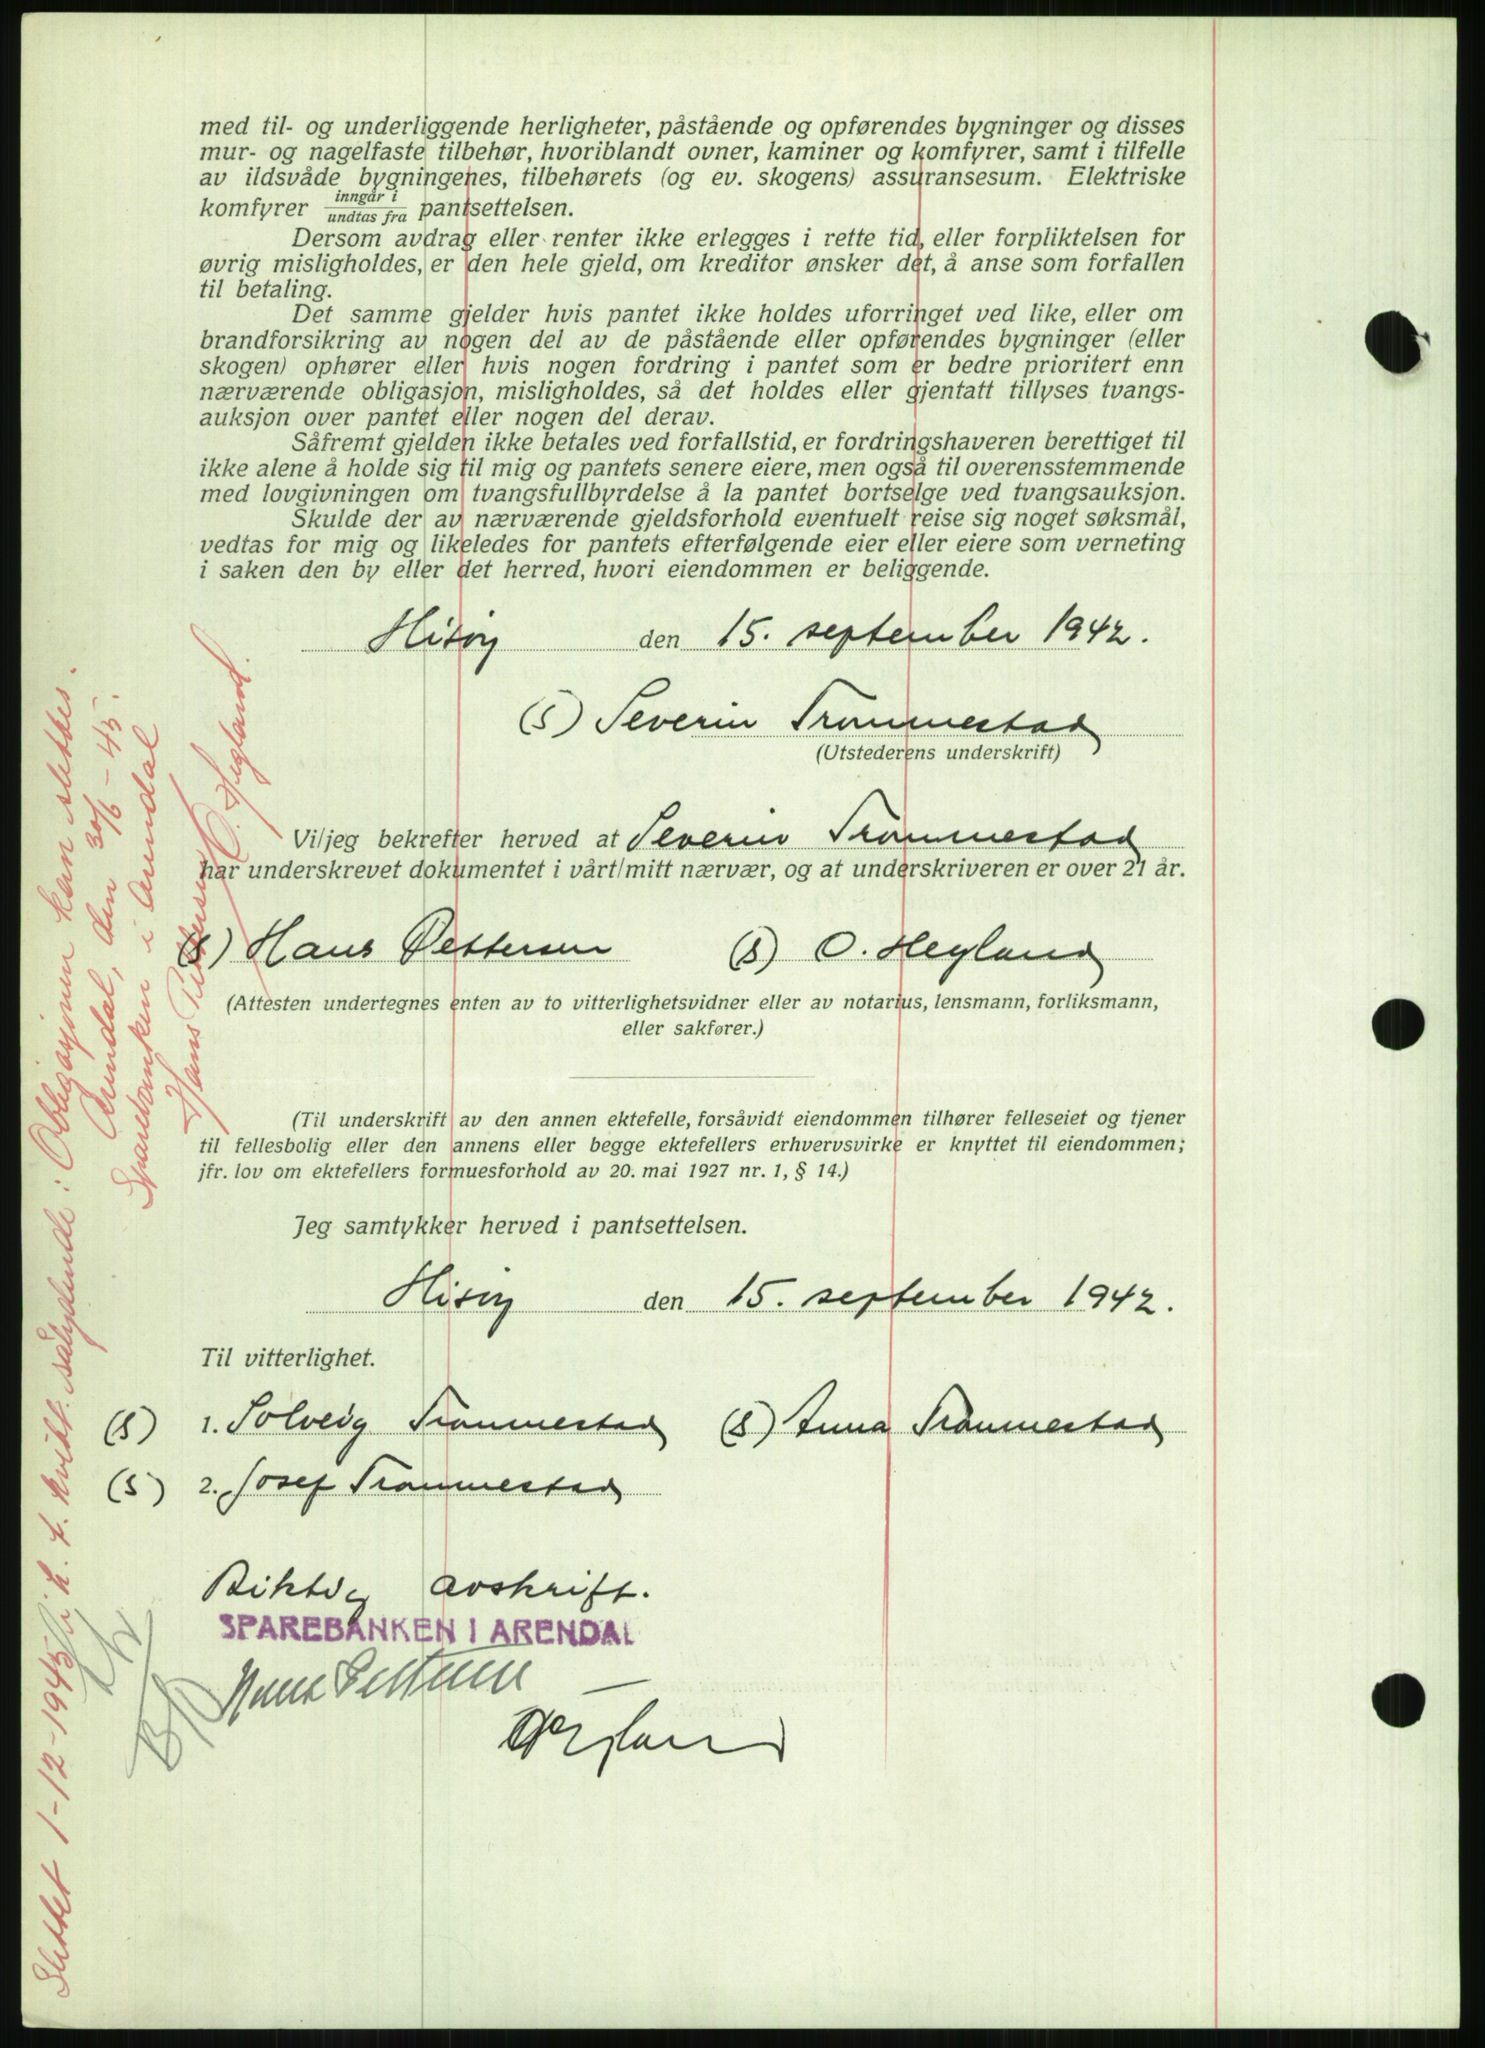 med til- og underliggende herligheter, påstående og opførendes bygninger og disses
mur- og nagelfaste tilbehør, hvoriblandt ovner, kaminer og komfyrer, samt i tilfelle
av ildsvåde bygningenes, tilbehørets (og ev. skogens) assuransesum. Elektriske
komfyrer inngår i / undtas fra pantsettelsen.
Dersom avdrag eller renter ikke erlegges i rette tid, eller forpliktelsen for
øvrig misligholdes, er den hele gjeld, om kreditor ønsker det, å anse som forfallen
til betaling.
Det samme gjelder hvis pantet ikke holdes uforringet ved like, eller om
brandforsikring av nogen del av de påstående eller opførendes bygninger (eller
skogen) ophører eller hvis nogen fordring i pantet som er bedre prioritert enn
nærværende obligasjon, misligholdes, så det holdes eller gjentatt tillyses tvangs-
auksjon over pantet eller nogen del derav.
Såfremt gjelden ikke betales ved forfallstid, er fordringshaveren berettiget til
ikke alene å holde sig til mig og pantets senere eiere, men også til overensstemmende
med lovgivningen om tvangsfullbyrdelse å la pantet bortselge ved tvangsauksjon.
Skulde der av nærværende gjeldsforhold eventuelt reise sig noget søksmål,
vedtas for mig og likeledes for pantets efterfølgende eier eller eiere som verneting
i saken den by eller det herred, hvori eiendommen er beliggende.
Hisøy den 15. september 1942.
(S) Severin Trommestad
(Utstederens underskrift)
Vi/jeg bekrefter herved at Severin Trommestad
har underskrevet dokumentet i vårt/mitt nærvær, og at underskriveren er over 21 år.
(S) Hans Pettersen (S) O. Hegland
(Attesten undertegnes enten av to vitterlighetsvidner eller av notarius, lensmann, forliksmann,
eller sakfører.)
(Til underskrift av den annen ektefelle, forsåvidt eiendommen tilhører felleseiet og tjener
til fellesbolig eller den annens eller begge ektefellers erhvervsvirke er knyttet til eiendommen;
jfr. lov om ektefellers formuesforhold av 20. mai 1927 nr. 1, § 14.)
Jeg samtykker herved i pantsettelsen.
Hisøy den 15. september 1942.
Til vitterlighet.
(S) 1. Solveig Trommestad (S) Anna Trommestad
(S) 2. Josef Trommestad
Riktig avskrift.
SPAREBANKEN I ARENDAL
Hans Pettersen
O Hegland
Slettet 1-12-1945 i h. t. kvitt. sålydende: Obligasjonen kan slettes.
Arendal, den 30/6 - 45.
Sparebanken i Arendal
Hans Pettersen / O. Hegland.